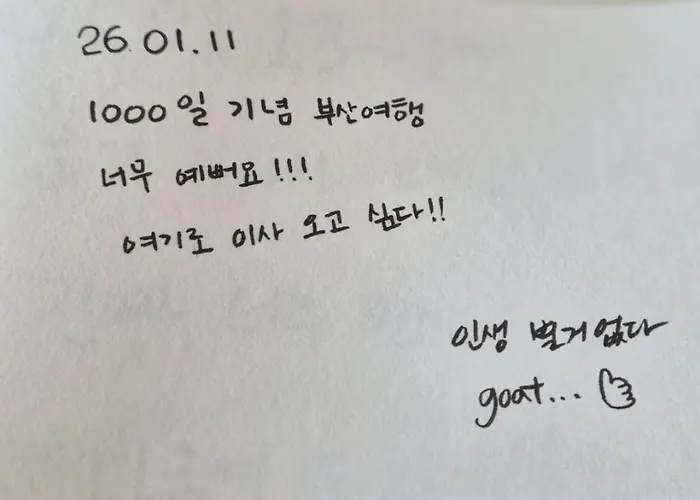 26.01.11
1000일 기념 부산여행
너무 예뻐요!!!
여기로 이사 오고 싶다!!
인생 별거없다
goat...